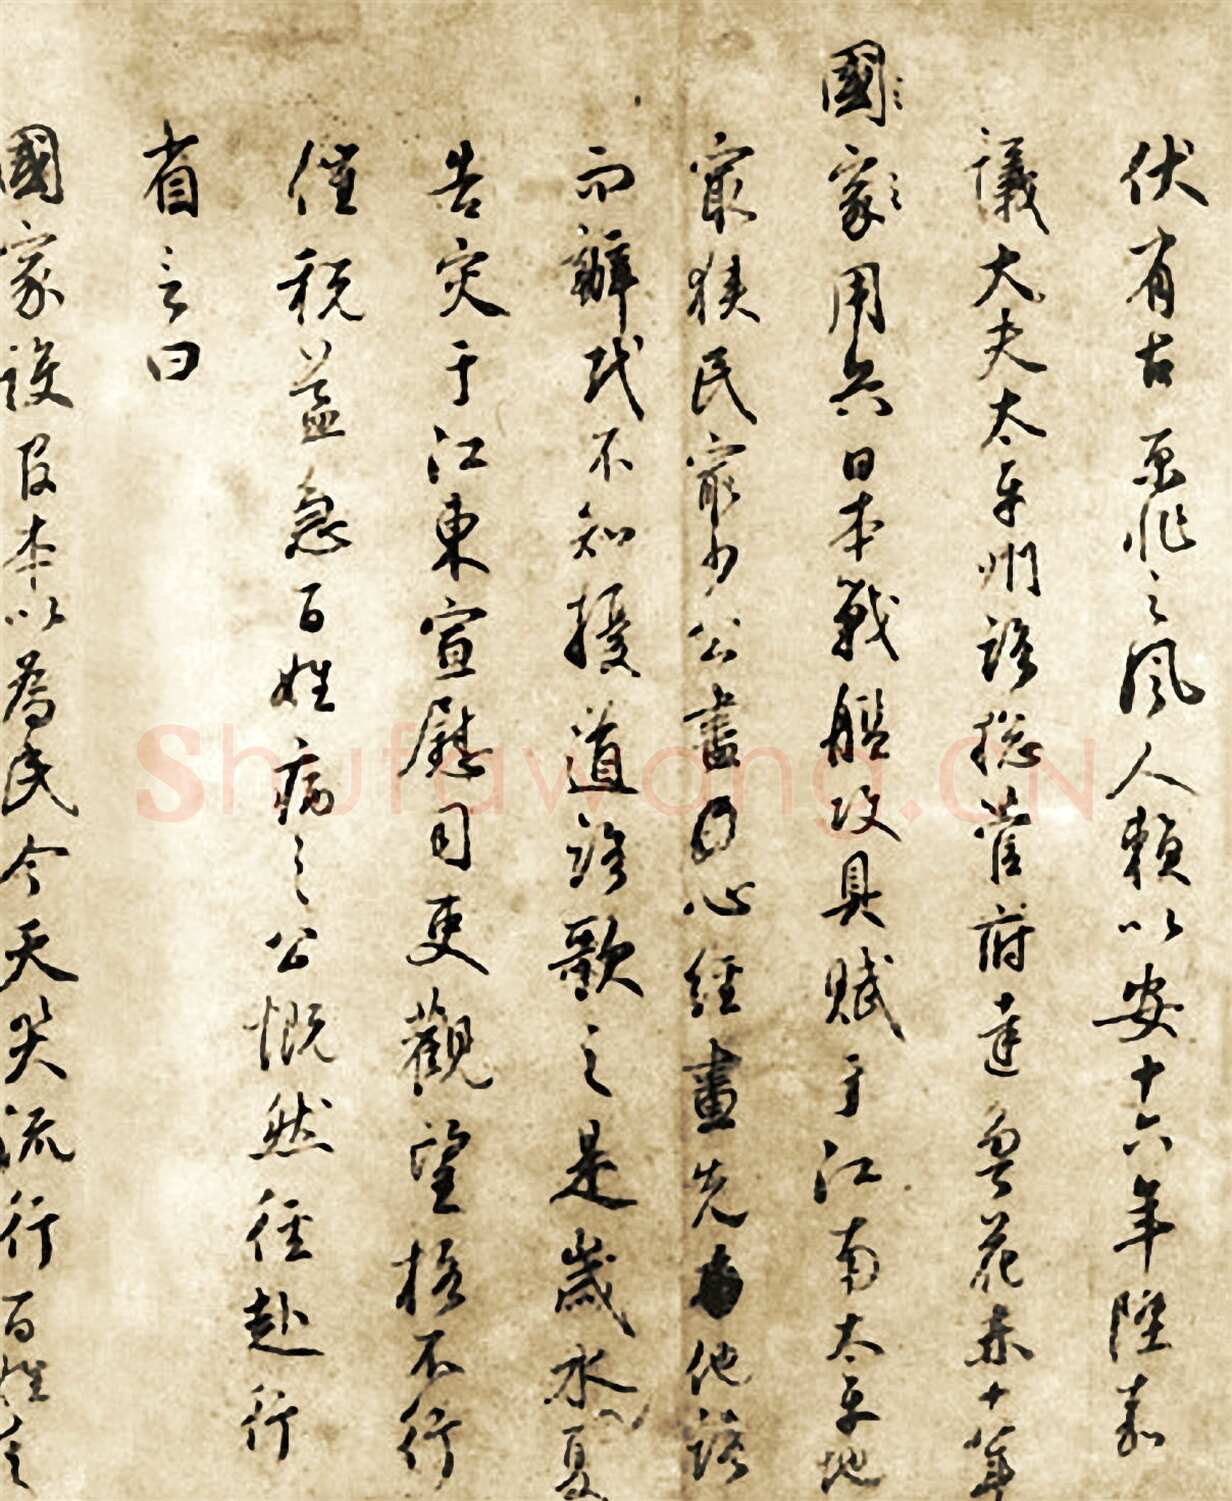 伏有古恶非之風人賴以安十六年陞嘉
議大夫太平州路總管府達魯花赤十八年
國家用兵日本戰艦攻具賦于江南太平地
最狹民最少公盡心經畫先他路
而辦民不知擾道路歌之是歲水夏
告灾于江東宣慰司吏觀望格不行
催稅益急百姓病之公慨然徑赴行
省言曰
國家設官本以為民今天災流行百姓之
Shufawang.CN